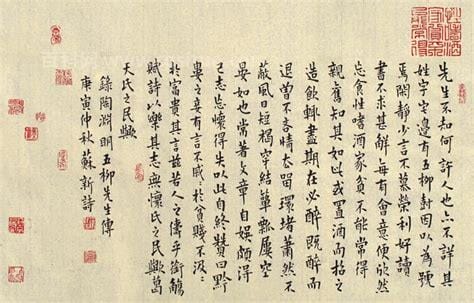 先生不知何許人也不詳其
姓字宅邊有五柳樹因以為號
焉閑靜少言不慕榮利好讀
書不求甚解每有會意便欣然
忘食性嗜酒家貧不能常得
親舊知其如此或置酒而招之
造飲輒盡期在必醉既醉而
退曾不吝情去留環堵蕭然不
蔽風日短褐穿結簞瓢屢空
晏如也常著文章自娛頗得
己志忘懷得失以此自終贊曰黔
婁之妻有言不戚〻於貧賤不汲〻
於富貴其言茲若人之儔乎銜觴
賦詩以樂其志無懷氏之民歟葛
天氏之民歟
錄陶淵明五柳先生傳
庚寅仲秋蘇新詩